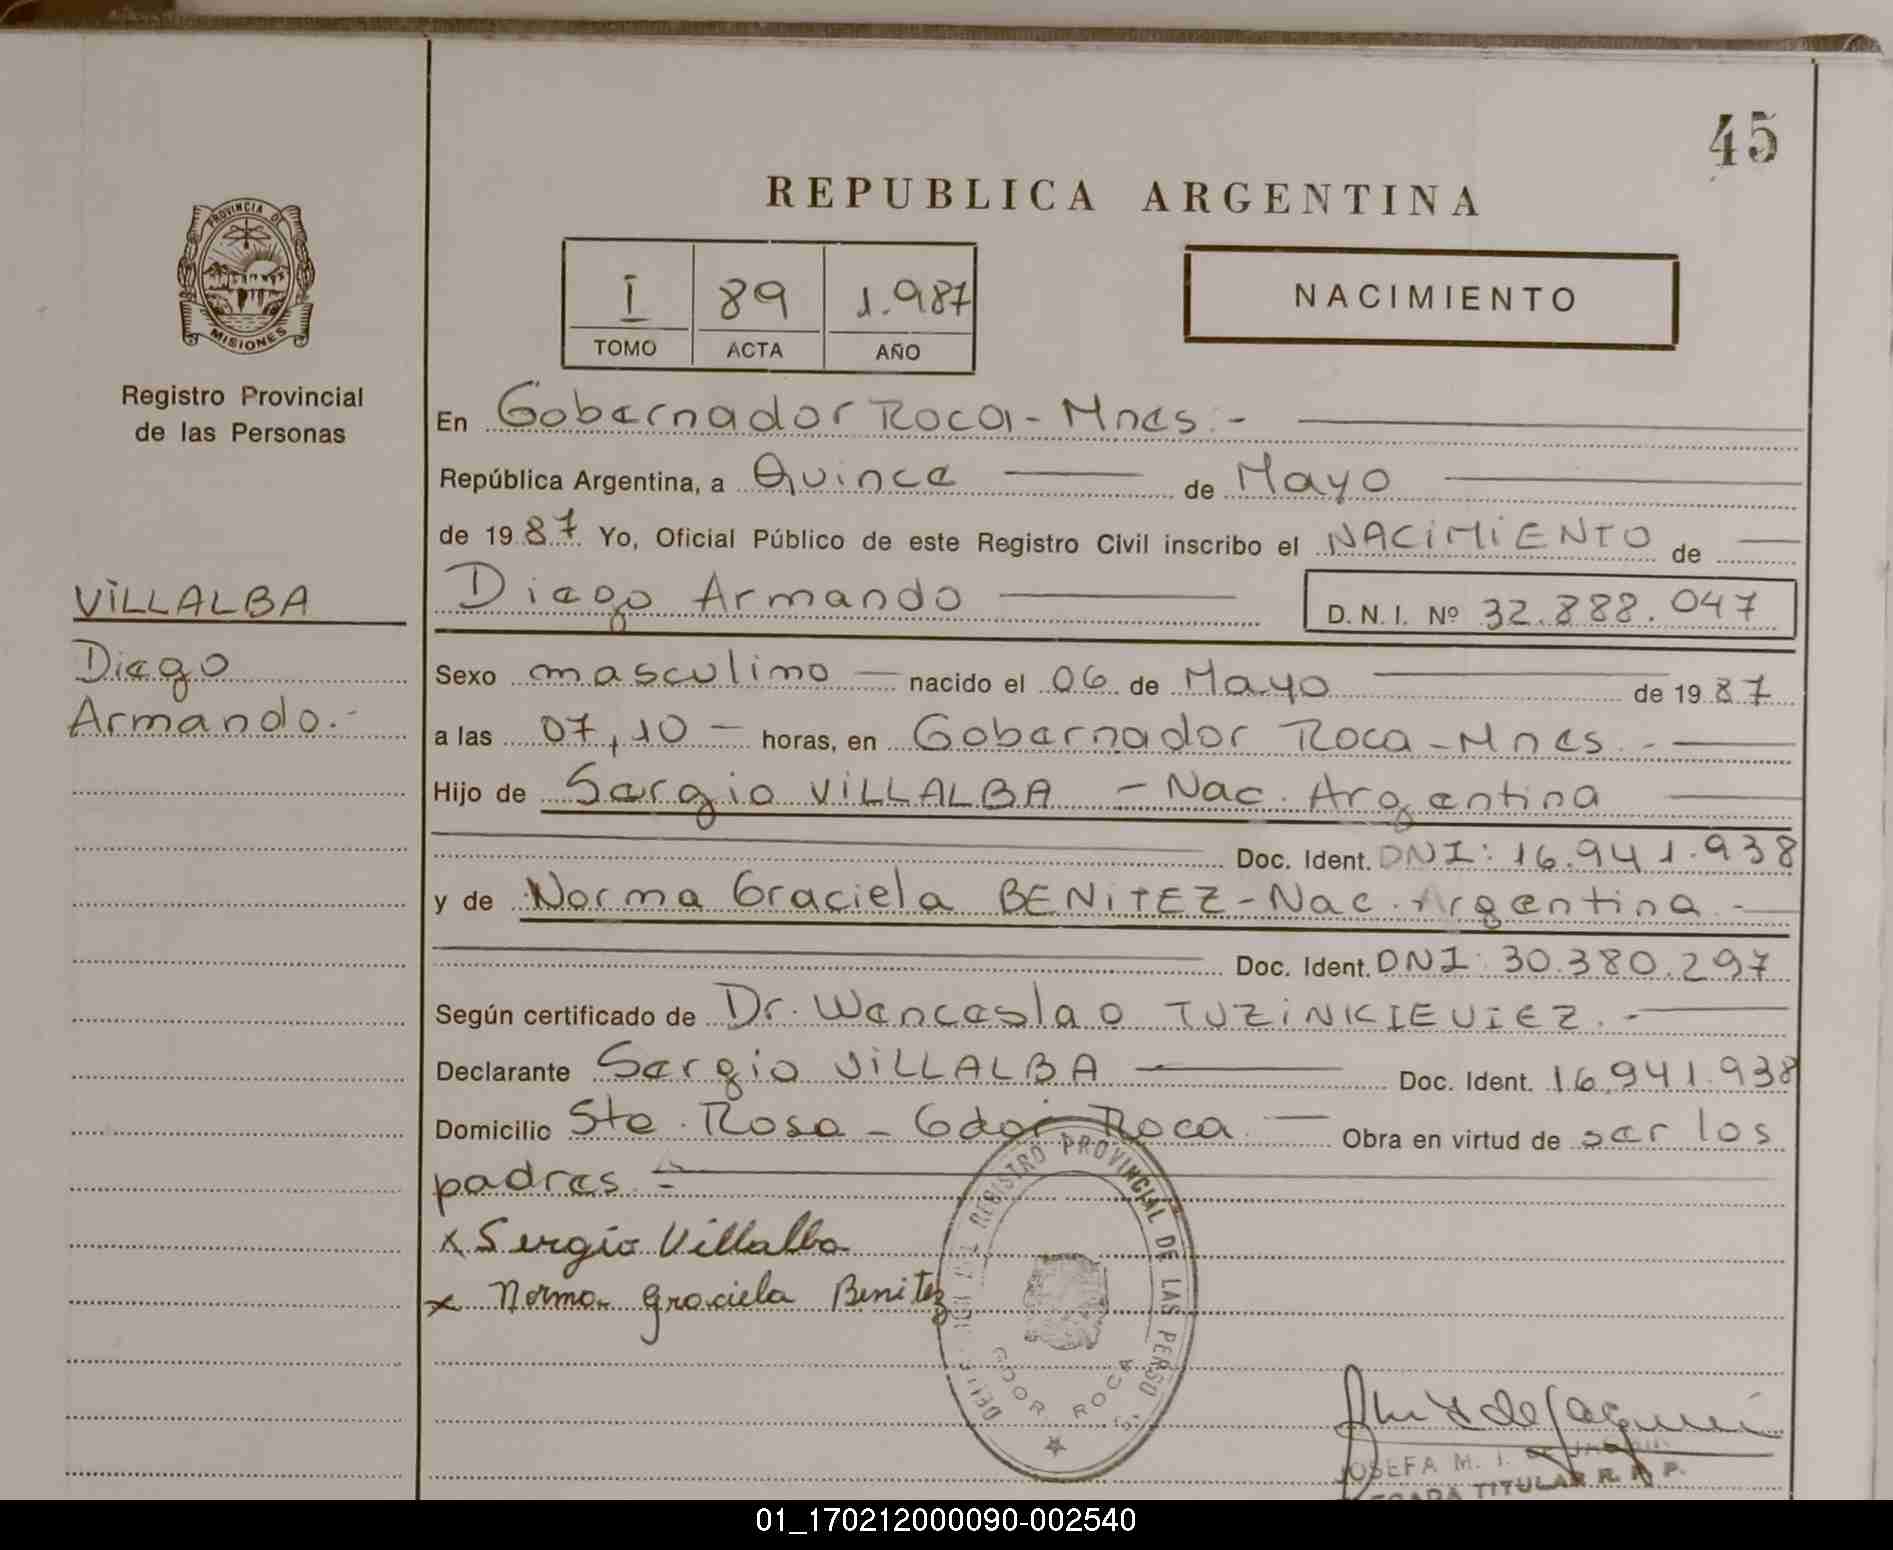 45
REPUBLICA ARGENTINA
PROVINCIA DE
MISIONES
Registro Provincial
de las Personas
I 89 1.987
TOMO ACTA AÑO
NACIMIENTO
En Gobernador Roca - Mnes. -
República Argentina, a Quince de Mayo
de 1987 Yo, Oficial Público de este Registro Civil inscribo el NACIMIENTO de
Diego Armando D. N. I. Nº 32.888.047
VILLALBA
Diego
Armando.-
Sexo masculino nacido el 06 de Mayo de 1987
a las 07,10 - horas, en Gobernador Roca - Mnes. -
Hijo de Sergio VILLALBA - Nac. Argentina
Doc. Ident. DNI: 16.941.938
y de Norma Graciela BENITEZ - Nac. Argentina. -
Doc. Ident. DNI: 30.380.297
Según certificado de Dr. Wenceslao TUZINKIEVIEZ. -
Declarante Sergio VILLALBA Doc. Ident. 16.941.938
Domicilio Sta. Rosa - Gdor Roca. Obra en virtud de ser los
padres. =
x Sergio Villalba
x Norma Graciela Benitez
REGISTRO PROVINCIAL DE LAS PERSO
GDOR ROCA
JOSEFA M. I. DE
TITULAR R. P. P.
01_170212000090-002540